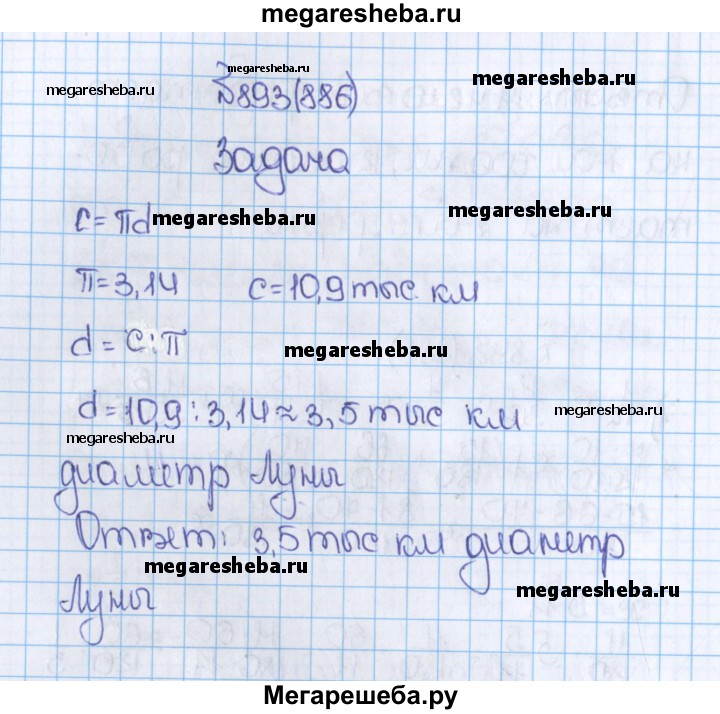 megaresheba.ru
megaresheba.ru
megaresheba.ru
megaresheba.ru
№893(886)
Задача
megaresheba.ru
C=πd megaresheba.ru
π=3,14 C=10,9 тыс. км
d=C:π
megaresheba.ru
d=10,9:3,14≈3,5 тыс км
megaresheba.ru
megaresheba.ru
диаметр Луны
Ответ: 3,5 тыс км диаметр
megaresheba.ru
megaresheba.ru
Луны
Мегарешеба.ру